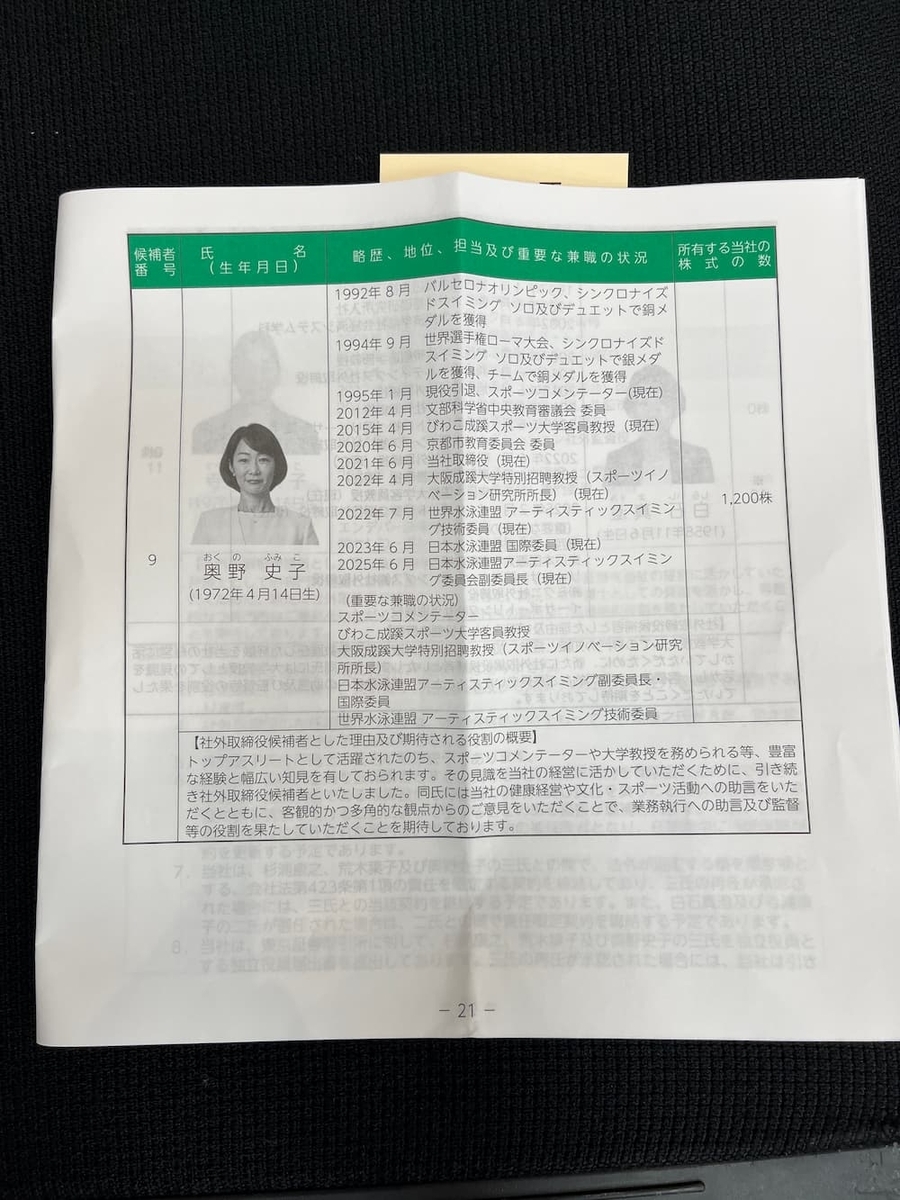 候補者
番　号
氏　　　　名
（生年月日）
略歴、地位、担当及び重要な兼職の状況
所有する当社の
株式の数
1992年８月　バルセロナオリンピック、シンクロナイズ
ドスイミング ソロ及びデュエットで銅メ
ダルを獲得
1994年９月　世界選手権ローマ大会、シンクロナイズド
スイミング ソロ及びデュエットで銀メダ
ルを獲得、チームで銅メダルを獲得
1995年１月　現役引退、スポーツコメンテーター(現在)
2012年４月　文部科学省中央教育審議会 委員
2015年４月　びわこ成蹊スポーツ大学客員教授（現在）
2020年６月　京都市教育委員会 委員
2021年６月　当社取締役（現在）
2022年４月　大阪成蹊大学特別招聘教授（スポーツイノ
ベーション研究所所長）（現在）
2022年７月　世界水泳連盟 アーティスティックスイミン
グ技術委員（現在）
2023年６月　日本水泳連盟 国際委員（現在）
2025年６月　日本水泳連盟アーティスティックスイミン
グ委員会副委員長（現在）
（重要な兼職の状況）
スポーツコメンテーター
びわこ成蹊スポーツ大学客員教授
大阪成蹊大学特別招聘教授（スポーツイノベーション研究
所所長）
日本水泳連盟アーティスティックスイミング副委員長・
国際委員
世界水泳連盟 アーティスティックスイミング技術委員
1,200株
9
おくの　ふみこ
奥野　史子
(1972年４月14日生)
【社外取締役候補者とした理由及び期待される役割の概要】
トップアスリートとして活躍されたのち、スポーツコメンテーターや大学教授を務められる等、豊富
な経験と幅広い知見を有しておられます。その見識を当社の経営に活かしていただくために、引き続
き社外取締役候補者といたしました。同氏には当社の健康経営や文化・スポーツ活動への助言をいた
だくとともに、客観的かつ多角的な観点からのご意見をいただくことで、業務執行への助言及び監督
等の役割を果たしていただくことを期待しております。
― 21 ―